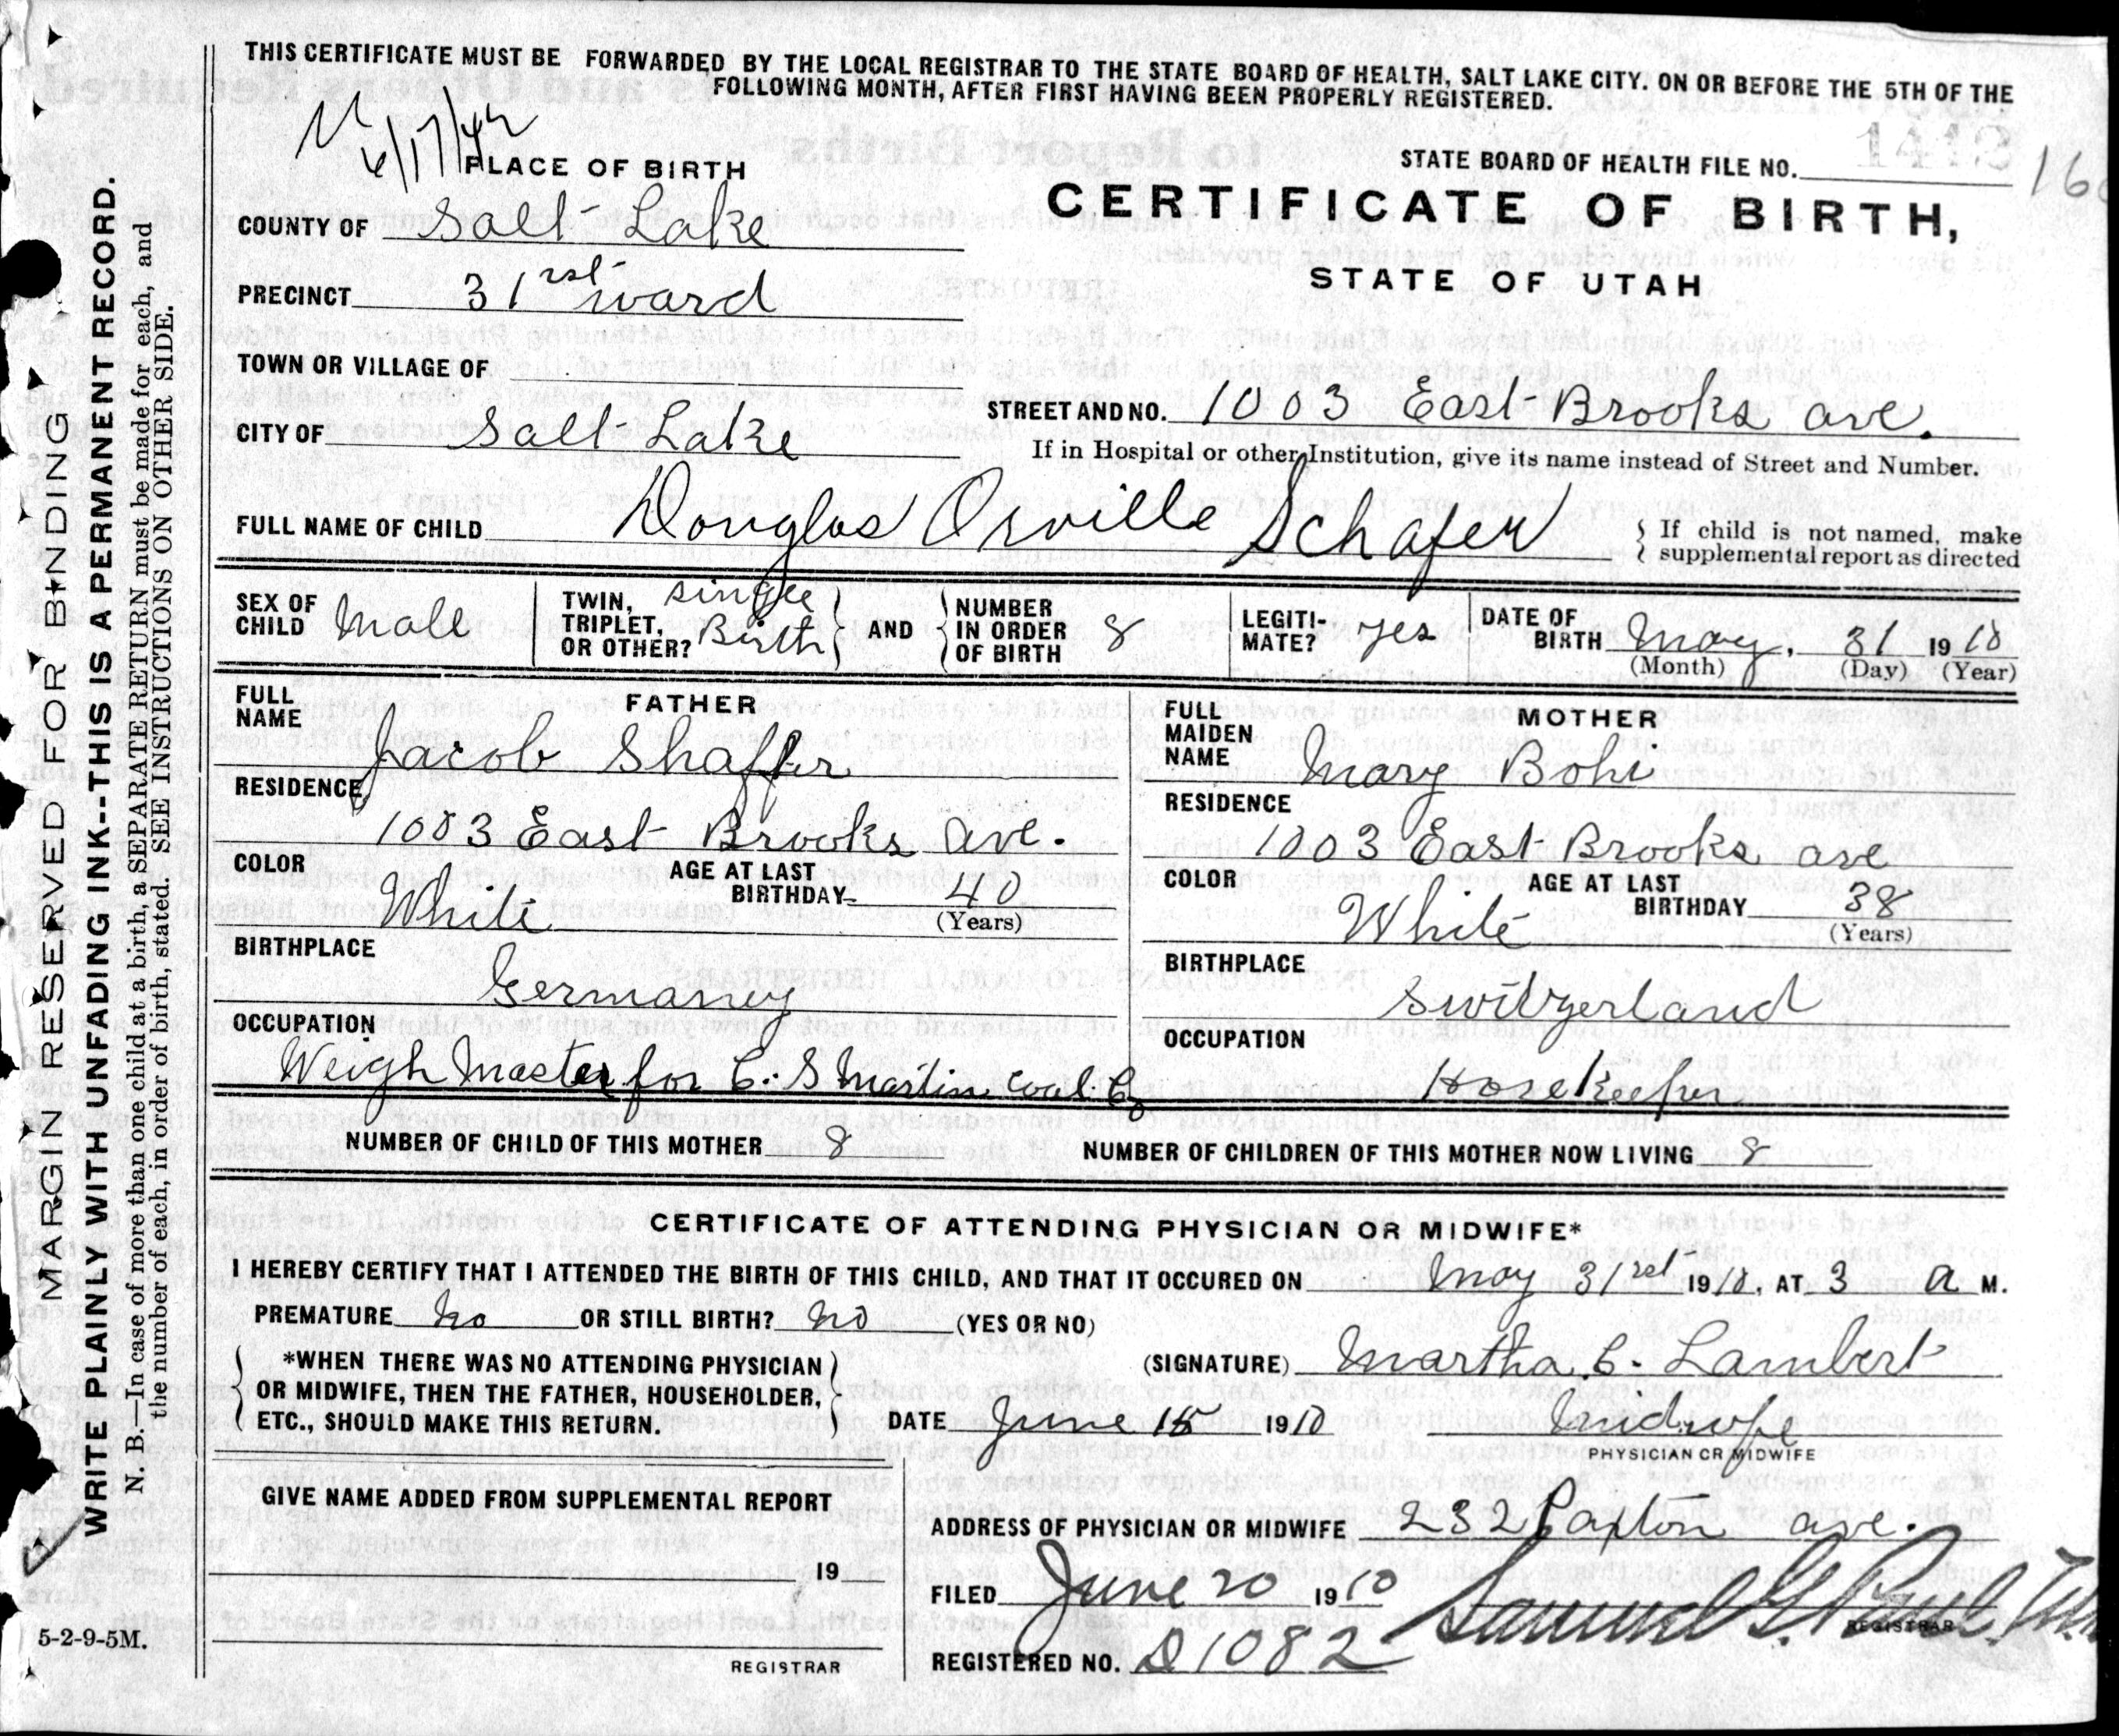 THIS CERTIFICATE MUST BE FORWARDED BY THE LOCAL REGISTRAR TO THE STATE BOARD OF HEALTH, SALT LAKE CITY. ON OR BEFORE THE 5TH OF THE
FOLLOWING MONTH, AFTER FIRST HAVING BEEN PROPERLY REGISTERED.
6/17/42
PLACE OF BIRTH
STATE BOARD OF HEALTH FILE NO.
CERTIFICATE OF BIRTH,
STATE OF UTAH
COUNTY OF Salt Lake
PRECINCT 31rst ward
TOWN OR VILLAGE OF
CITY OF Salt Lake
STREET AND NO. 1003 East Brooks ave.
If in Hospital or other Institution, give its name instead of Street and Number.
FULL NAME OF CHILD Douglas Orville Schafer
{ If child is not named, make
{ supplemental report as directed
SEX OF CHILD Male
TWIN, TRIPLET, OR OTHER? single Birth
AND
NUMBER IN ORDER OF BIRTH 8
LEGITI-MATE? yes
DATE OF BIRTH May. 31 1910
(Month) (Day) (Year)
FATHER
FULL NAME Jacob Shaffer
RESIDENCE
1003 East Brooks ave.
COLOR White
AGE AT LAST BIRTHDAY 40
(Years)
BIRTHPLACE
Germaney
OCCUPATION
Weigh Master for C. S Martin Coal Co
MOTHER
FULL MAIDEN NAME Mary Bohi
RESIDENCE
1003 East Brooks ave
COLOR White
AGE AT LAST BIRTHDAY 38
(Years)
BIRTHPLACE
Switzerland
OCCUPATION
Hosekeeper
NUMBER OF CHILD OF THIS MOTHER 8
NUMBER OF CHILDREN OF THIS MOTHER NOW LIVING 8
CERTIFICATE OF ATTENDING PHYSICIAN OR MIDWIFE*
I HEREBY CERTIFY THAT I ATTENDED THE BIRTH OF THIS CHILD, AND THAT IT OCCURED ON May 31rst 1910, AT 3 a M.
PREMATURE No OR STILL BIRTH? No (YES OR NO)
*WHEN THERE WAS NO ATTENDING PHYSICIAN
OR MIDWIFE, THEN THE FATHER, HOUSEHOLDER,
ETC., SHOULD MAKE THIS RETURN.
(SIGNATURE) Martha C. Lambert
DATE June 15 1910
Midwife
PHYSICIAN OR MIDWIFE
GIVE NAME ADDED FROM SUPPLEMENTAL REPORT
19
REGISTRAR
ADDRESS OF PHYSICIAN OR MIDWIFE 232 Paxton ave.
FILED June 20 1910 Samuel G. Paul
REGISTRAR
REGISTERED NO. D1082
MARGIN RESERVED FOR BINDING
WRITE PLAINLY WITH UNFADING INK--THIS IS A PERMANENT RECORD.
N. B.—In case of more than one child at a birth, a SEPARATE RETURN must be made for each, and
the number of each, in order of birth, stated. SEE INSTRUCTIONS ON OTHER SIDE.
5-2-9-5M.